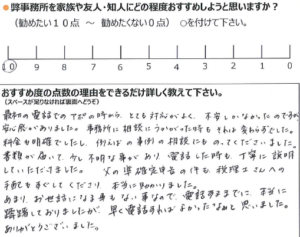 ●弊事務所を家族や友人・知人にどの程度おすすめしようと思いますか?
(勧めたい10点 ~ 勧めたくない0点) ○を付けて下さい。
10 9 8 7 6 5 4 3 2 1 0
おすすめ度の点数の理由をできるだけ詳しく教えて下さい。
(スペースが足りなければ裏面へどうぞ)
最初の電話での の時から、とても対応がよく、不安しかなかったのですが
安心感がありました。事務所に相談にうかがった時もそれは変わらずでした。
料金も明確でしたし、 の事例の相談にものってくださいました。
書類が届いて、少し不明な事があり、電話した時も、丁寧に説明
していただきました。 父の準確定申告の件も税理士さんへの
手配もすぐしてくださり、本当に助かりました。
あまり、お世話になる事もない事なので、電話するまでに、本当に
躊躇しておりましたが、早く電話すればよかったなぁと思いました。
ありがとうございました。